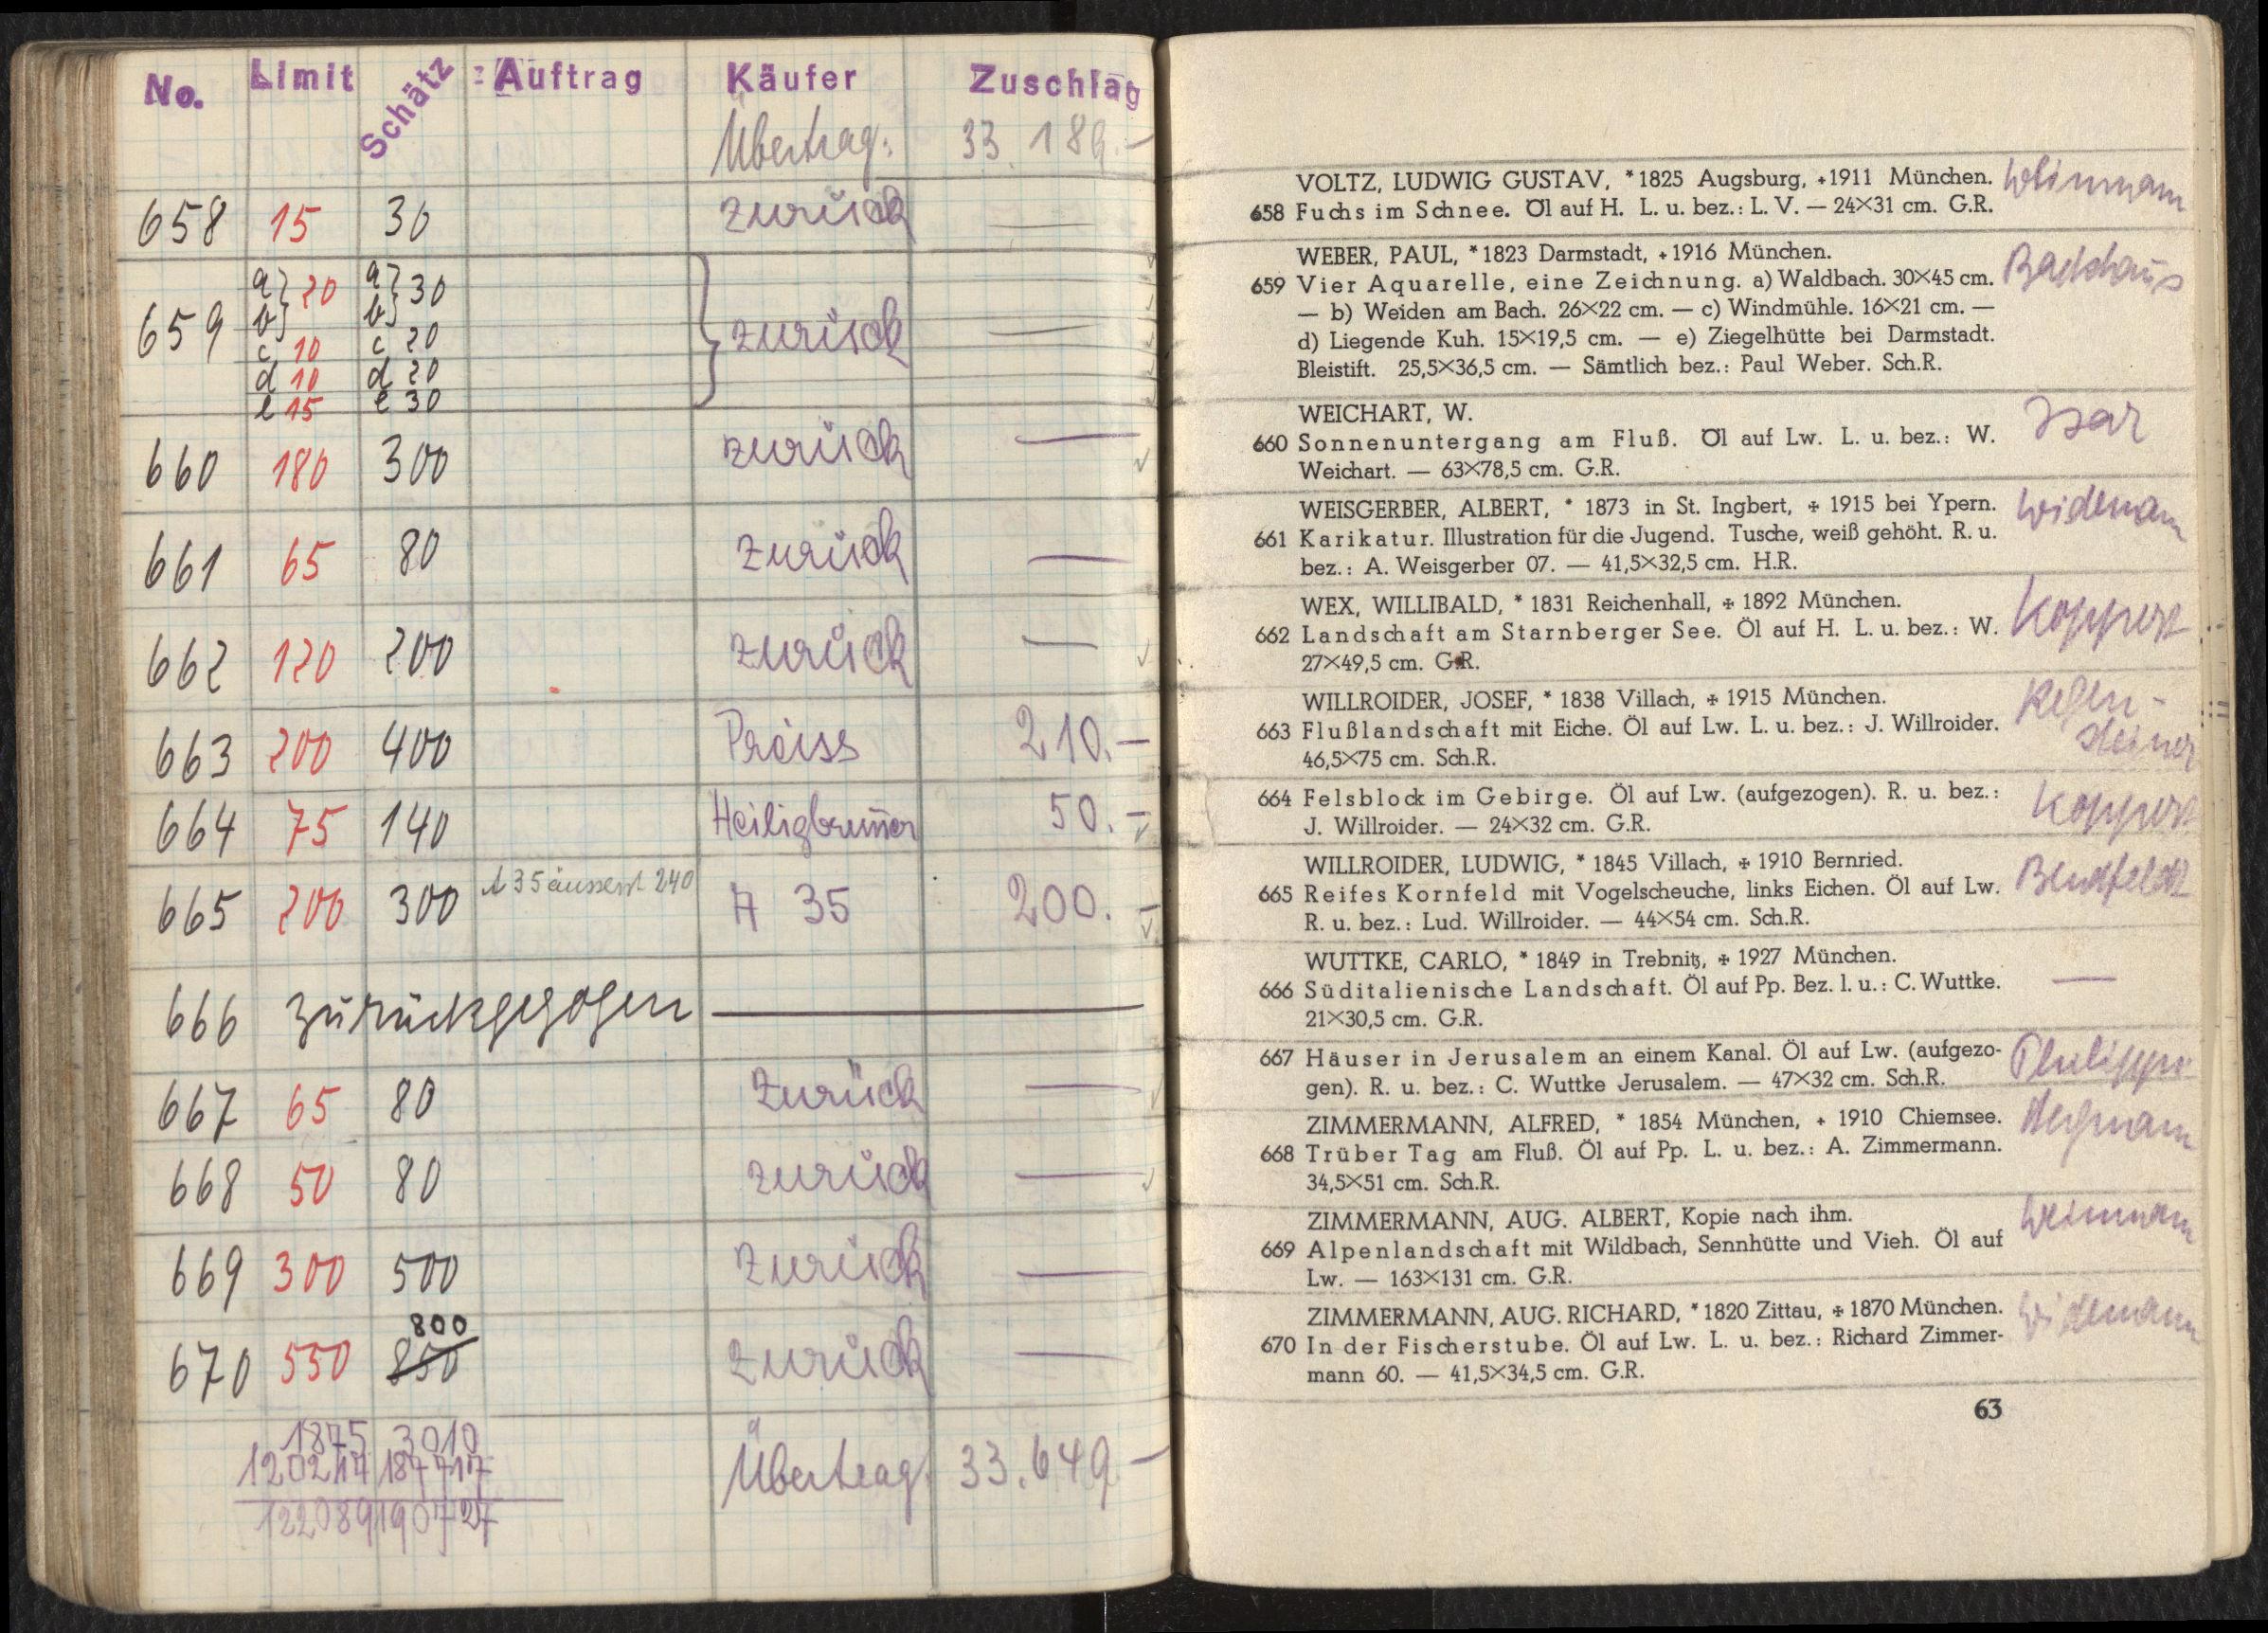 No. Limit Schätz Auftrag Käufer Zuschlag
Übertrag: 33.189.—
658 15 30 zurück —
659 a) b) 20 a) b) 30 zurück —
c 10 c 20
d 10 d 20
e 15 e 30
660 180 300 zurück —
661 65 80 zurück —
662 120 200 zurück —
663 200 400 Preiss 210.—
664 75 140 Heiligbrunner 50.—
665 200 300 A 35 äusserst 240 A 35 200.—
666 zurückgezogen —
667 65 80 zurück —
668 50 80 zurück —
669 300 500 zurück —
800
670 550 850 zurück —
1875 3010
120214 187717
122089 190727
Übertrag: 33.649.—
VOLTZ, LUDWIG GUSTAV, *1825 Augsburg, +1911 München. Weinmann
658 Fuchs im Schnee. Öl auf H. L. u. bez.: L. V. — 24×31 cm. G.R.
WEBER, PAUL, *1823 Darmstadt, +1916 München.
659 Vier Aquarelle, eine Zeichnung. a) Waldbach. 30×45 cm.
— b) Weiden am Bach. 26×22 cm. — c) Windmühle. 16×21 cm. —
d) Liegende Kuh. 15×19,5 cm. — e) Ziegelhütte bei Darmstadt.
Bleistift. 25,5×36,5 cm. — Sämtlich bez.: Paul Weber. Sch.R.
WEICHART, W. Isar
660 Sonnenuntergang am Fluß. Öl auf Lw. L. u. bez.: W.
Weichart. — 63×78,5 cm. G.R.
WEISGERBER, ALBERT, * 1873 in St. Ingbert, + 1915 bei Ypern. Widemann
661 Karikatur. Illustration für die Jugend. Tusche, weiß gehöht. R. u.
bez.: A. Weisgerber 07. — 41,5×32,5 cm. H.R.
WEX, WILLIBALD, * 1831 Reichenhall, + 1892 München. Koppert
662 Landschaft am Starnberger See. Öl auf H. L. u. bez.: W.
27×49,5 cm. G.R.
WILLROIDER, JOSEF, * 1838 Villach, + 1915 München. Regen-
663 Flußlandschaft mit Eiche. Öl auf Lw. L. u. bez.: J. Willroider. steiner
46,5×75 cm. Sch.R.
664 Felsblock im Gebirge. Öl auf Lw. (aufgezogen). R. u. bez.: Koppert
J. Willroider. — 24×32 cm. G.R.
WILLROIDER, LUDWIG, * 1845 Villach, + 1910 Bernried.
665 Reifes Kornfeld mit Vogelscheuche, links Eichen. Öl auf Lw.
R. u. bez.: Lud. Willroider. — 44×54 cm. Sch.R.
WUTTKE, CARLO, * 1849 in Trebnitz, + 1927 München.
666 Süditalienische Landschaft. Öl auf Pp. Bez. l. u.: C. Wuttke. —
21×30,5 cm. G.R.
667 Häuser in Jerusalem an einem Kanal. Öl auf Lw. (aufgezo- Philippi
gen). R. u. bez.: C. Wuttke Jerusalem. — 47×32 cm. Sch.R.
ZIMMERMANN, ALFRED, * 1854 München, + 1910 Chiemsee.
668 Trüber Tag am Fluß. Öl auf Pp. L. u. bez.: A. Zimmermann.
34,5×51 cm. Sch.R.
ZIMMERMANN, AUG. ALBERT, Kopie nach ihm. Weinmann
669 Alpenlandschaft mit Wildbach, Sennhütte und Vieh. Öl auf
Lw. — 163×131 cm. G.R.
ZIMMERMANN, AUG. RICHARD, *1820 Zittau, + 1870 München. Widemann
670 In der Fischerstube. Öl auf Lw. L. u. bez.: Richard Zimmer-
mann 60. — 41,5×34,5 cm. G.R.
63